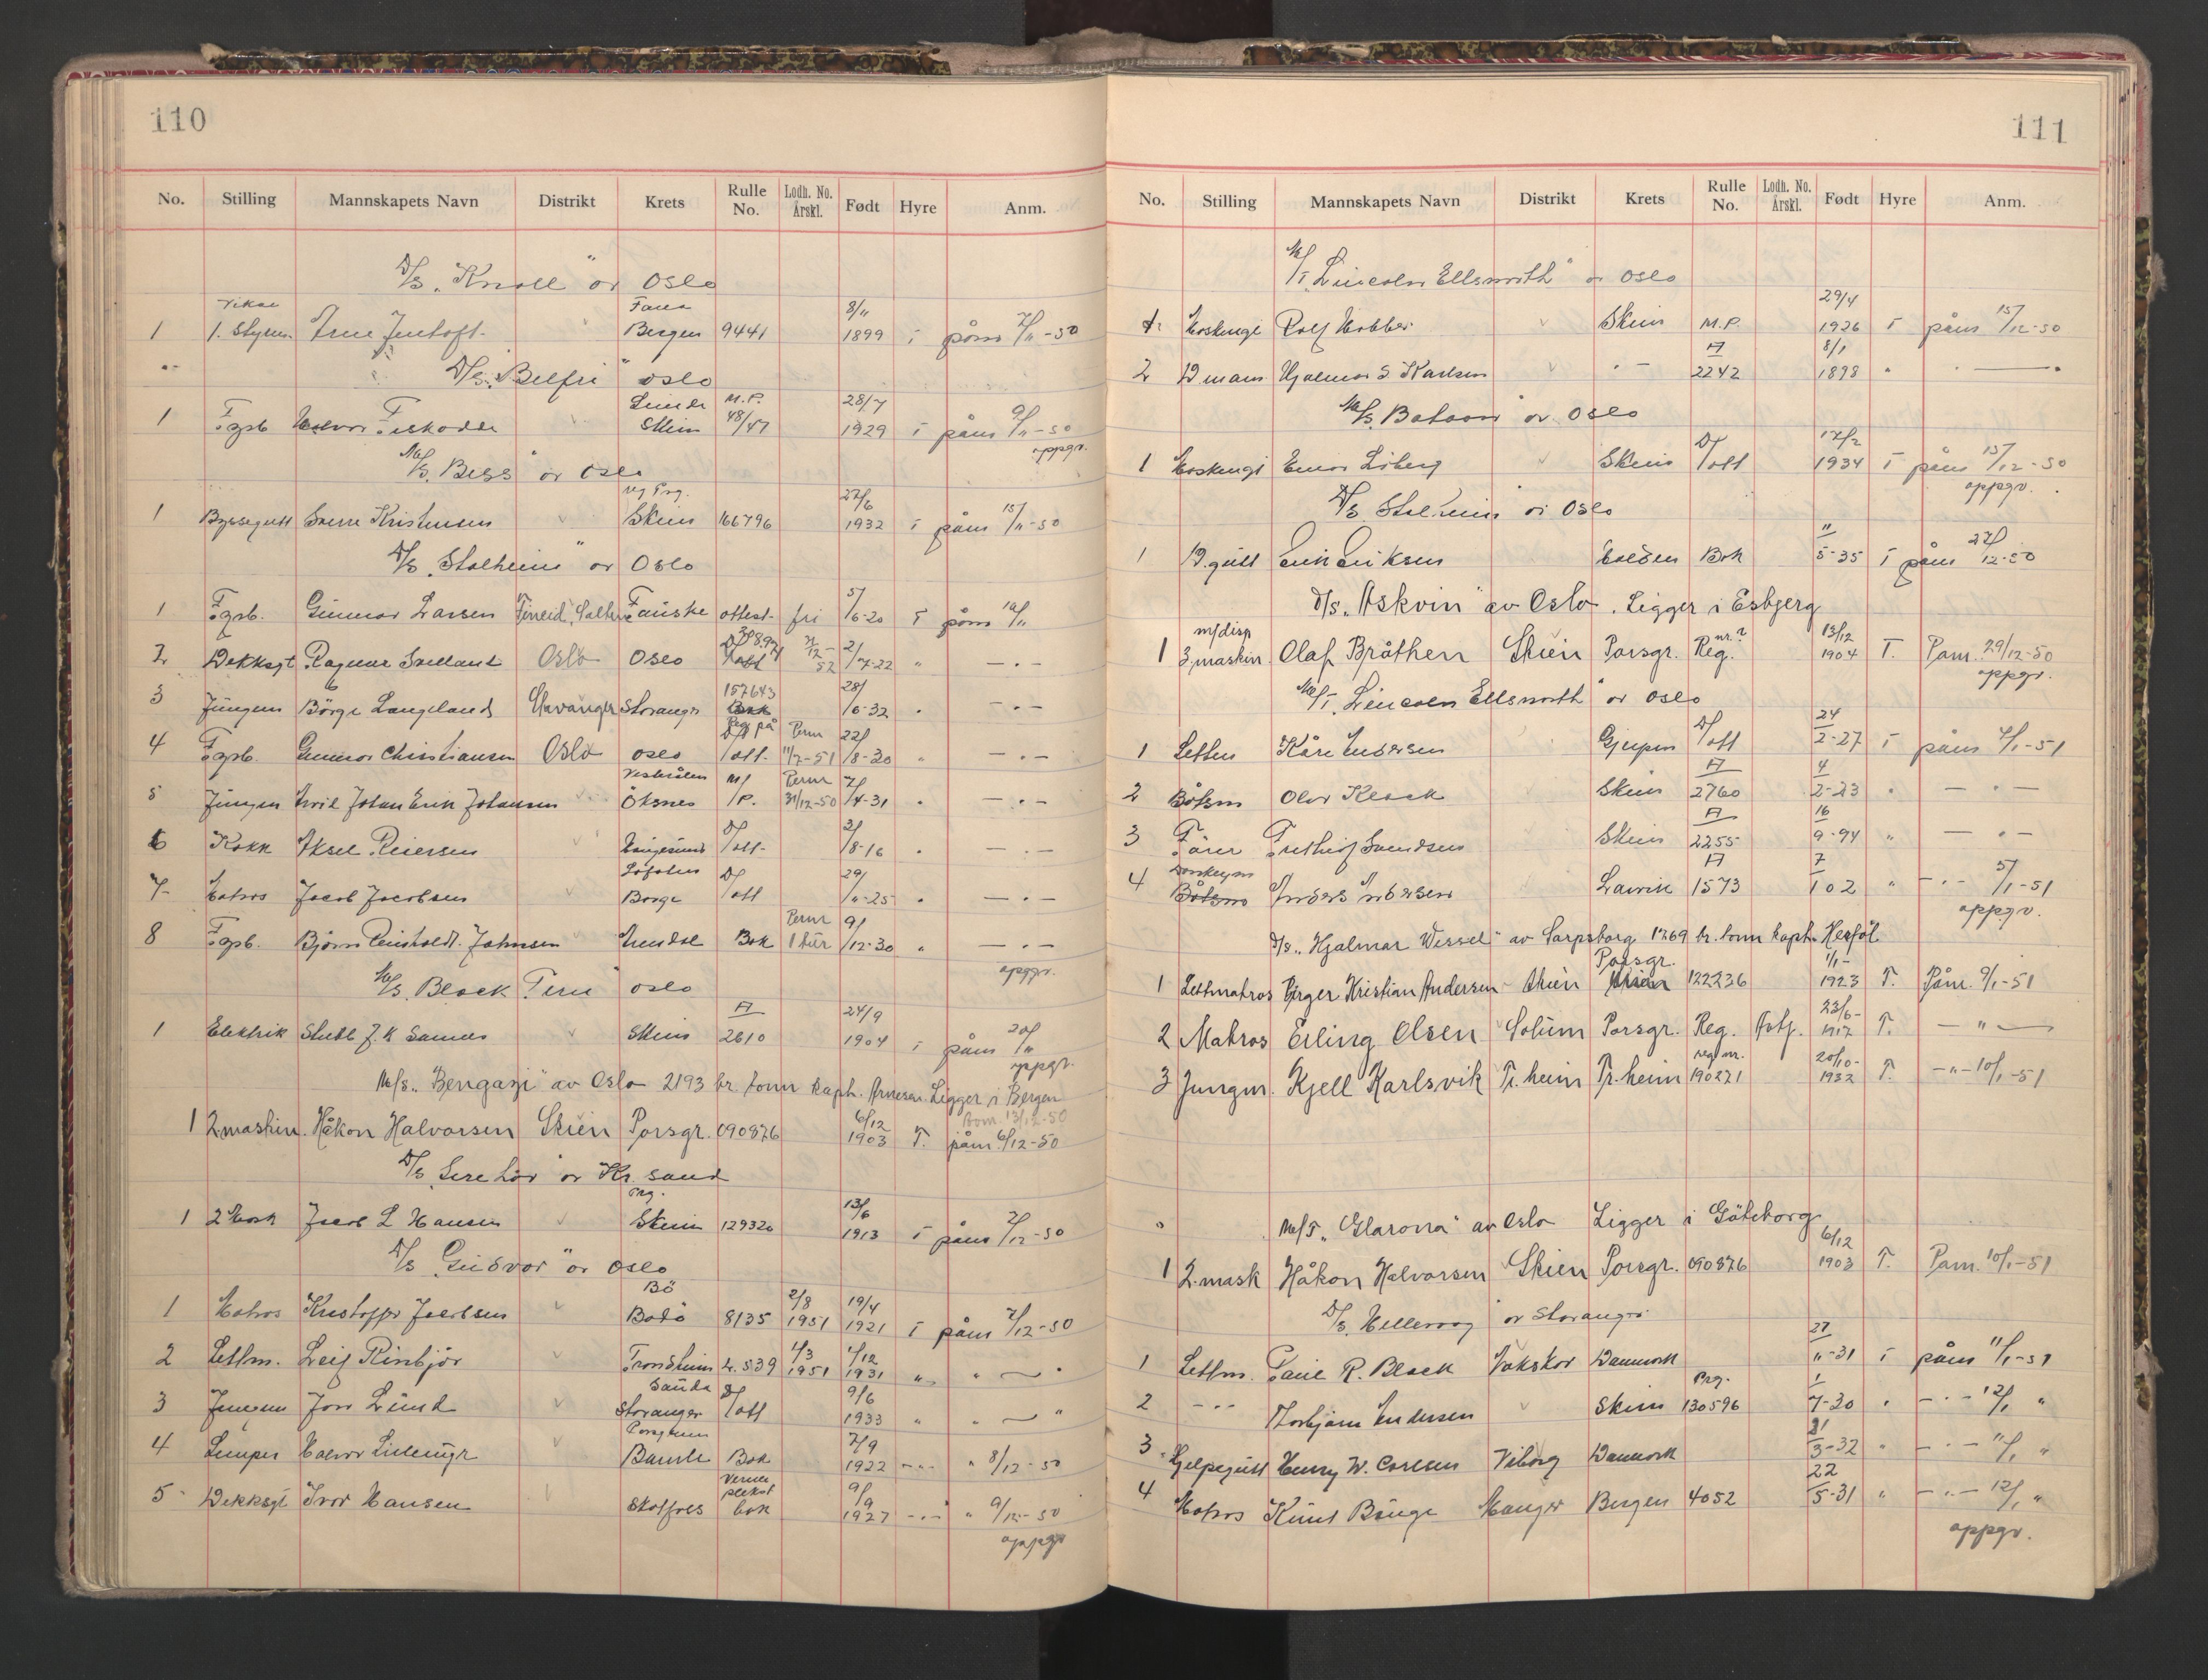 110
No. Stilling Mannskapets Navn Distrikt Krets Rulle No. Lodh. No. Årskl. Født Hyre Anm.
D/S "Knoll" av Oslo
Vikar Fana 8/11
1 1. Styrm. Arne Jentoft Bergen 9441 1899 T påm 7/11-50
D/S "Belfri" Oslo
Lunde M.P. 28/7
1 Fgpb. Halvor Fiskodde Skien 48/47 1929 T påm 9/11-50
oppgv.
M/S "Bess" av Oslo
reg Prg. 27/6
1 Byssegutt Sverre Kristensen Skien 166796 1932 T påm 15/11-50
D/S "Stalheim" av Oslo
1 Fgpb. Gunnar Larsen Finneid, Salten Fauske attest- fri 5/6-20 T påm 10/11
2 Dekksgt Ragnar Oslo Oslo 2/7-22 " — " —
3 Jungm Börge Langeland Stavanger Stavanger 157643 28/6-32 " — " —
4 Fgpb. Gunnar Christiansen Oslo Oslo D/att. Perm 11/7-51 22/8-30 " — " —
5 Jungm Arvid Johan Erik Johansen Vesterålen Öksnes M/P. Perm 31/12-50 7/4-31 " — " —
6 Kokk Aksel Reiersen Haugesund D/att- 3/8-16 " — " —
7 Matros Jacob Jacobsen Lofoten Borge D/att 29/11-25 " — " —
8 Fgpb. Björn Reinholdt Johnsen Arendal Bok Perm 1 tur 9/12-30 " — " —
oppgv.
M/S "Black Tern" Oslo
A 24/9
1 Elektrik Skien 2610 1904 T påm 20/11
oppgv.
M/S. "Bengazi" av Oslo 2193 br. tonn kapt. Arnesen. Ligger i Bergen
Avm. 13/12-50
1 2. maskin. Håkon Halvorsen Skien Porsgr. 090876 6/12 1903 T. påm. 6/12-50
D/S av Kr. sand
Prg. 13/6
1 2 Mask Jacob L Hansen Skien 129320 1913 T påm 2/12-50
D/S "Gudvor" av Oslo
Bö
1 Matros Kristoffer Jacobsen Bodö 8135 2/8 1951 19/4 1921 T påm 7/12-50
2 Lettm. Leif Rinbjör Trondheim L. 539 4/3 1951 4/12 1931 " " — "
3 Jungm Jon Lund Sauda Stavanger D/att 9/6 1933 " " — "
4 Lemper Halvor Porsgrunn Bamble Bok 7/9 1922 — " — " 8/12-50
5 Dekksgt Ivar Hansen Skotfoss bok 9/9 1927 — " — " 9/12-50
oppgv
111
No. Stilling Mannskapets Navn Distrikt Krets Rulle No. Lodh. No. Årskl. Født Hyre Anm.
M/T "Lincoln Ellsworth" av Oslo
29/4
1 Maskingt Rolf Skien M.P. 1926 T påm 15/12-50
2 D. mann Hjalmar S. Karlsen " — A 2242 8/1 1898 " " — "
M/S "Bataan" av Oslo
1 Maskingt Einar Liberg Skien D/att 17/2 1934 T påm 15/12-50
oppgv.
D/S "Stalheim" av Oslo
1 D. gutt Erik Eriksen Halden Bok 11/5-35 T påm 27/12-50
D/S. "Askvin" av Oslo. Ligger i Esbjerg
m/disp nr.? 13/12
1 3. maskin. Olaf Bråthen Skien Porsgr. Reg. 1904 T. Påm. 29/12-50
oppgv.
M/T. "Lincoln Ellsworth" av Oslo
1 Lettm Kåre Andersen Gjerpen D/att 24/2-27 T påm 4/1-51
2 Båtsm Olav Klock Skien A 2760 4/2-23 " — " —
3 Frithiof Svendsen Skien A 2255 16/9-94 " — " —
4 Donkeym Båtsm Anders Andersen Larvik A 1573 7/1 02 " — " — 5/1-51
oppgv.
D/S. "Hjalmar Wessel" av Sarpsborg 1769 br. tonn kapt. Herföl
Porsgr. 1/1-
1 Lettmatros Birger Kristian Andersen Skien Skien 122236 1923 T. Påm. 9/1-51
2 Matros Erling Olsen Solum Porsgr. Reg. Avtj. 23/6- 1917 T. — " —
3 Jungm. Kjell Karlsvik Tr. heim Tr. heim reg. nr. 190271 20/10- 1932 T. — " — 10/1-51
M/T. "Glarona" av Oslo Ligger i Göteborg
1 2. mask Håkon Halvorsen Skien Porsgr. 090876 6/12 1903 T. Påm. 10/1-51
D/S. "Hellervag" av Stavanger
1 Lettm. R. Black Danmark 27/11-31 T påm 11/1-51
2 — " Thorbjörn Andersen Skien Prg. 130596 1/7-30 " — " — 12/1 "
3 Hjelpegutt Henry W. Carlsen Viborg Danmark 31/3-32 " — " — 11/1 "
4 Matros Knut Bauge Manger Bergen 4052 22/5-31 " — " — 12/1 "
oppgv.